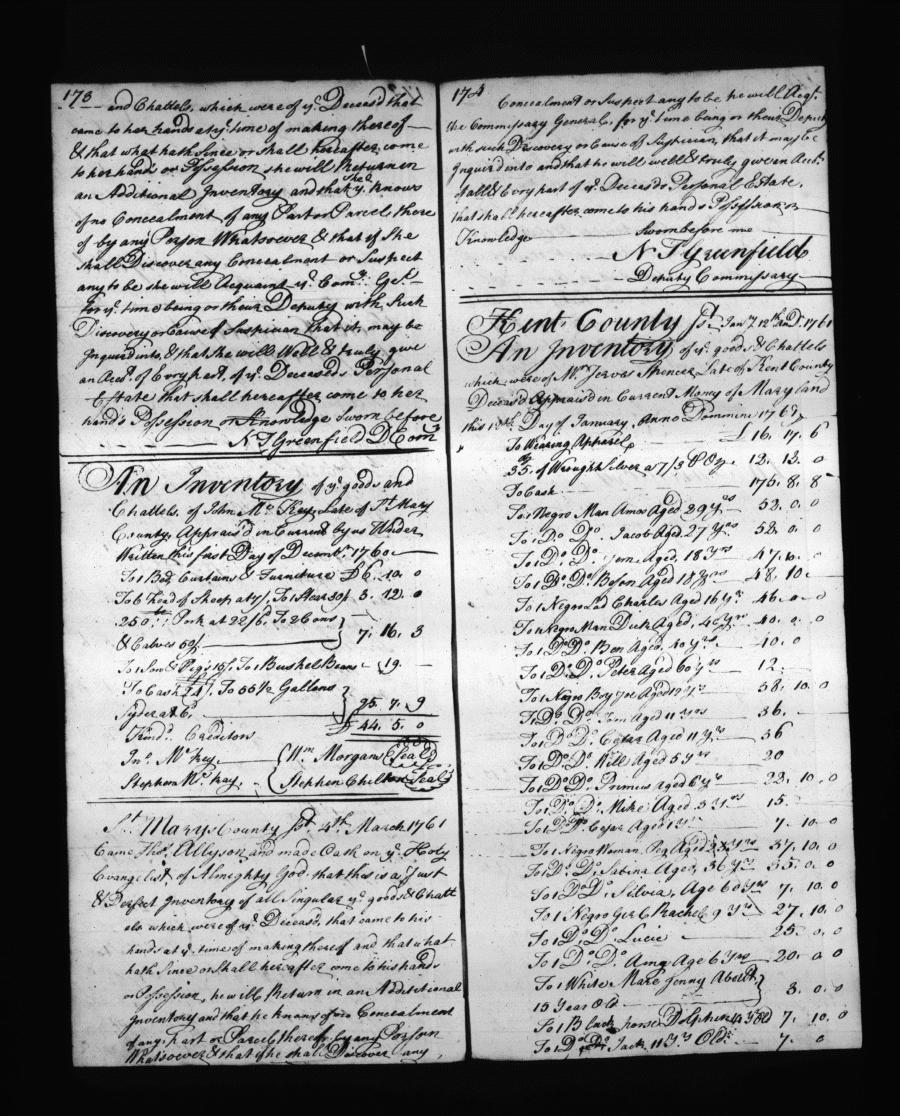 173
and Chattels, which were of ye. Deceasd that
came to her hands at ye. time of making thereof
& that what hath Since or shall hereafter come
to her hands or Possession she will Return in
an Additional Inventory and that She knows
of no Concealment of any Part or Parcel there
of by any Person Whatsoever & that if She
shall Discover any Concealment or Suspect
any to be she will Acquaint ye. Comy. Gel.
for ye. time being or their Deputy with Such
Discovery or Cause of Suspician that it may be
Inquird into, & that she will Well & truly give
an Acct. of Every part of ye. Deceaseds Personal
Estate that shall hereafter come to her
hands Possession or Knowledge Sworn before
N T Greenfield D Comy
An Inventory of ye. goods and
Chattels, of John Mc. Key, Late of St. Mary
County, Appraisd in Current by us Under
Written this first Day of Decemr. 1760
To 1 Bed Curtains & Furniture £6. 10. 0
To 6 Head of Sheep at 7/, To 1 Stear 30/ 3. 12. 0
250 lb. Pork at 22/6. To 2 Cows
& Calves 50/ 7. 16. 3
To 1 Sow & Pigs 15/, To 1 Bushel Beans 19. —
To Cash To 55 1/2 Gallons
Syder at 6. 25. 7. 9
£ 44. 5. 0
Kind. Creditors
Jno. Mc. Key. Wm Morgan Seald
Stephen Mc. Kay. Stephen Chilton Seal
St. Marys County Sst. 4th. March 1761
Came Thos. Allyson, and made Oath on ye. Holy
Evangelist, of Almighty God, that this is a Just
& Perfect Inventory of all Singular ye. goods & Chatt
els which were of ye. Deceasd. that came to his
hands at ye. time of making thereof and that what
hath Since or Shall hereafter come to his hands
or Possession, he will Return in an Additional
Inventory and that he knows of no Concealment
of any part or Parcel thereof by any Person
Whatsoever & that if he shall Discover any
174
Concealment or Suspect any to be he will Acqt.
the Commissary General, for ye. time being or their Deputy
with such Discovery or Cause of Suspician, that it may be
Inquird into and that he will well & truly give an Acct.
of all & Every part of ye. Deceaseds Personal Estate,
that shall hereafter come to his hands Possession or
Knowledge Sworn before me
N T Greenfield
Deputy Commissary
Kent County Sst. Jany. 12th 1761
An Inventory of ye. goods & Chattels
which were of Mr. Jervas Spencer, Late of Kent County
Deceasd Appraisd in Current Money of Maryland
this Day of January, Anno Dommini
To Wearing Apparel £ 16. 17. 6
35. oz of Wrought Silver a 7/8 P Oz. 13. 13. 0
To Cash 175. 8. 8
To 1 Negro Man Amos Aged 29 Yrs 53. 0. 0
To 1 Do. Do. Jacob Aged 27 Yrs 53. 0. 0
To 1 Do. Do. Aged 18 Yrs 47. 0. 0
To 1 Do. Do. Aged 18 Yrs 48. 10
To 1 Negro Lad Charles Aged 16 Yrs 46. 0. 0
To 1 Negro Man Dick Aged 40. 0. 0
To 1 Do. Do. Ben Aged 40 Yrs 40. 0
To 1 Do. Do. Peter Aged 60 Yrs 12.
To 1 Negro Boy Joe Aged Yrs 38. 10. 0
To 1 Do. Do. Tom Aged 11 Yrs 36.
To 1 Do. Do. Cesar Aged 11 Yrs 36
To 1 Do. Do. Will Aged 5 Yrs 20
To 1 Do. Do. Primus Aged 6 Yrs 23. 10. 0
To 1 Do. Do. Mike Aged 3 Yrs 15.
To 1 Do. Do. Cesar Aged 1 7. 10. 0
To 1 Negro Woman Aged Yrs 37. 10. 0
To 1 Do. Do. Sabina Aged 36 Yrs 35. 0. 0
To 1 Do. Do. Silvia, Age 60 Yrs 7. 10. 0
To 1 Negro Girl Rachel 9 Yrs 27. 10. 0
To 1 Do. Do. Lucie 25. 0. 0
To 1 Do. Do. Amy Age 6 Yrs 20. 0. 0
To 1 White Mare Jenny Abelet
15 Year Old 3. 0. 0
To 1 Black horse Dolphin Yrs Old 7. 10. 0
To 1 Do. Do. Jack 11 Yrs Old 7. 0